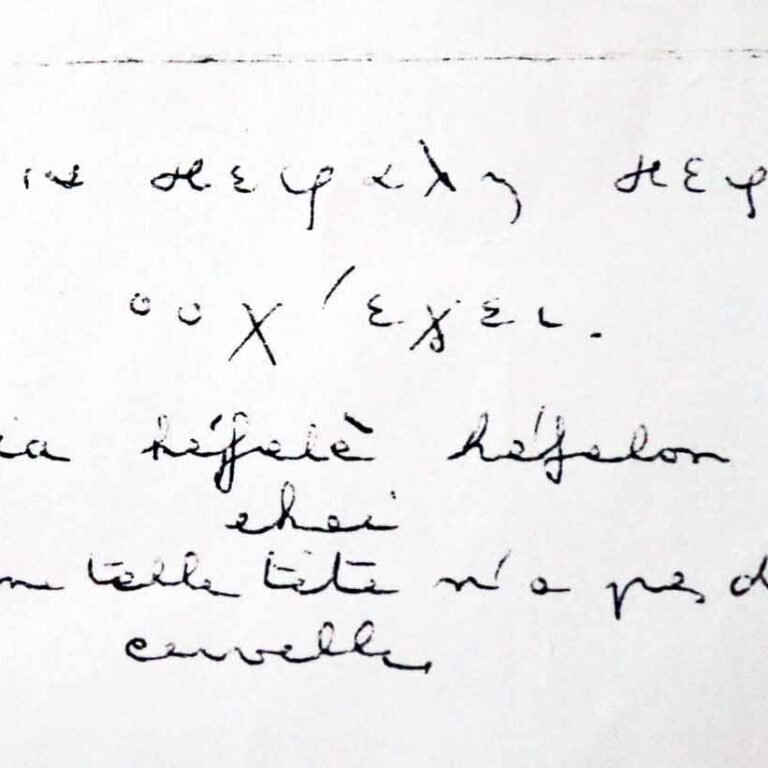 κεφαλη κεφ
ουχ 'εχει.
ia kéffalè kéfalon
ehei
ne telle tête n'a pas d
cervelle,